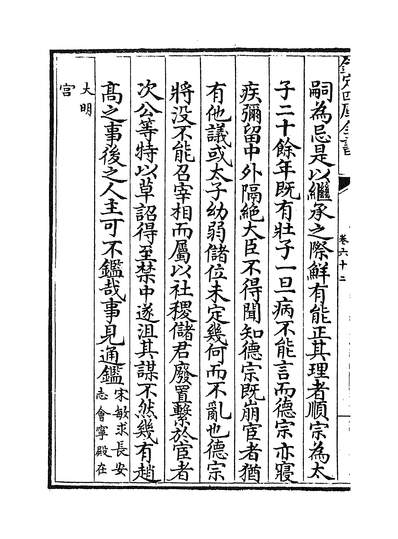 欽定四庫全書
卷六十二
嗣為忌是以繼承之際鮮有能正其理者順宗為太
子二十餘年既有壯子一旦病不能言而德宗亦寢
疾彌留中外隔絶大臣不得聞知德宗既崩宦者猶
有他議或太子幼弱儲位未定幾何而不亂也德宗
將没不能召宰相而屬以社稷儲君廢置繫於宦者
次公等特以草詔得至禁中遂沮其謀不然幾有趙
髙之事後之人主可不鑑哉事見通鑑宋敏求長安志會寧殿在
大明宫